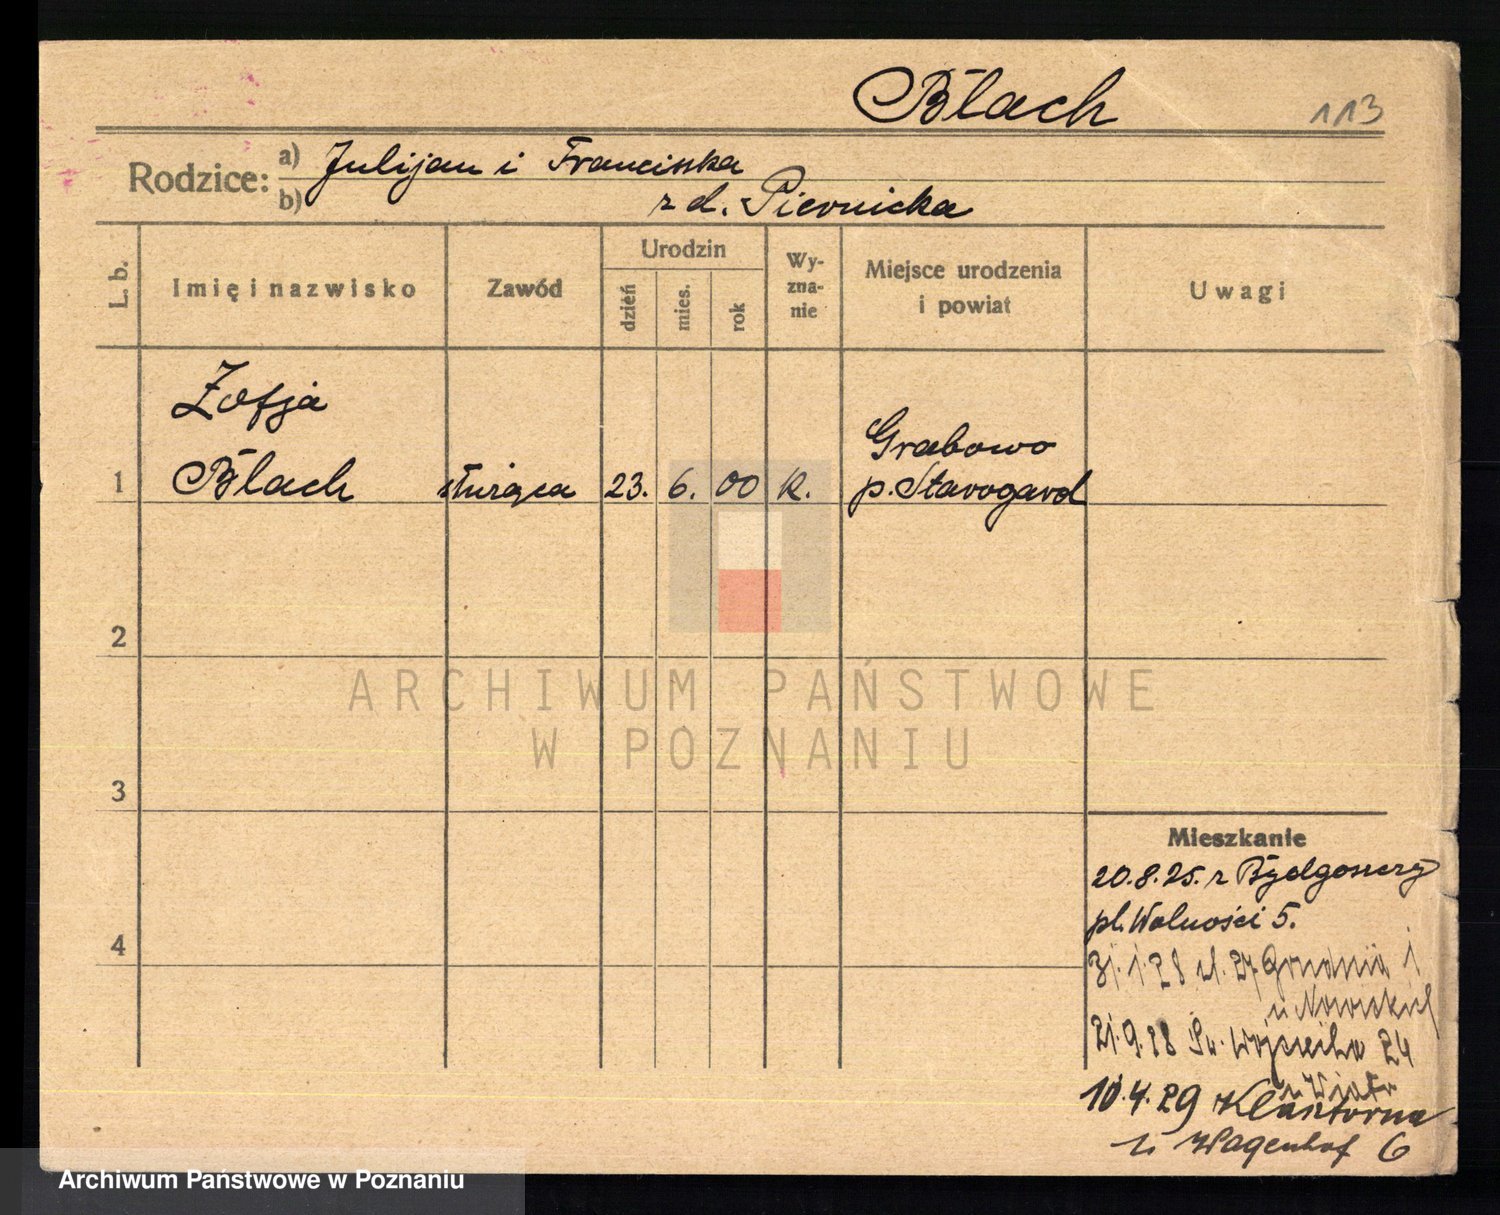 Błach 113
Rodzice: a) Julijan i Franciszka
b) z d. Piernicka
L. b.
Imię i nazwisko
Zawód
Urodzin
dzień
mies.
rok
Wy-
zna-
nie
Miejsce urodzenia
i powiat
Uwagi
Zofja
Grabowo
1 Błach służąca 23. 6. 00 K. p. Starogard
2
3
4
ARCHIWUM PAŃSTWOWE
W POZNANIU
Mieszkanie
20.8.25. z Bydgoszczy
pl. Wolności 5.
31.1.28 ul. 27 Grudnia
u Nowickich
21.9.28 Św. Wojciecha 24
u Wiatr
10.4.29 Klasztorna
u Wagenhof 6
Archiwum Państwowe w Poznaniu